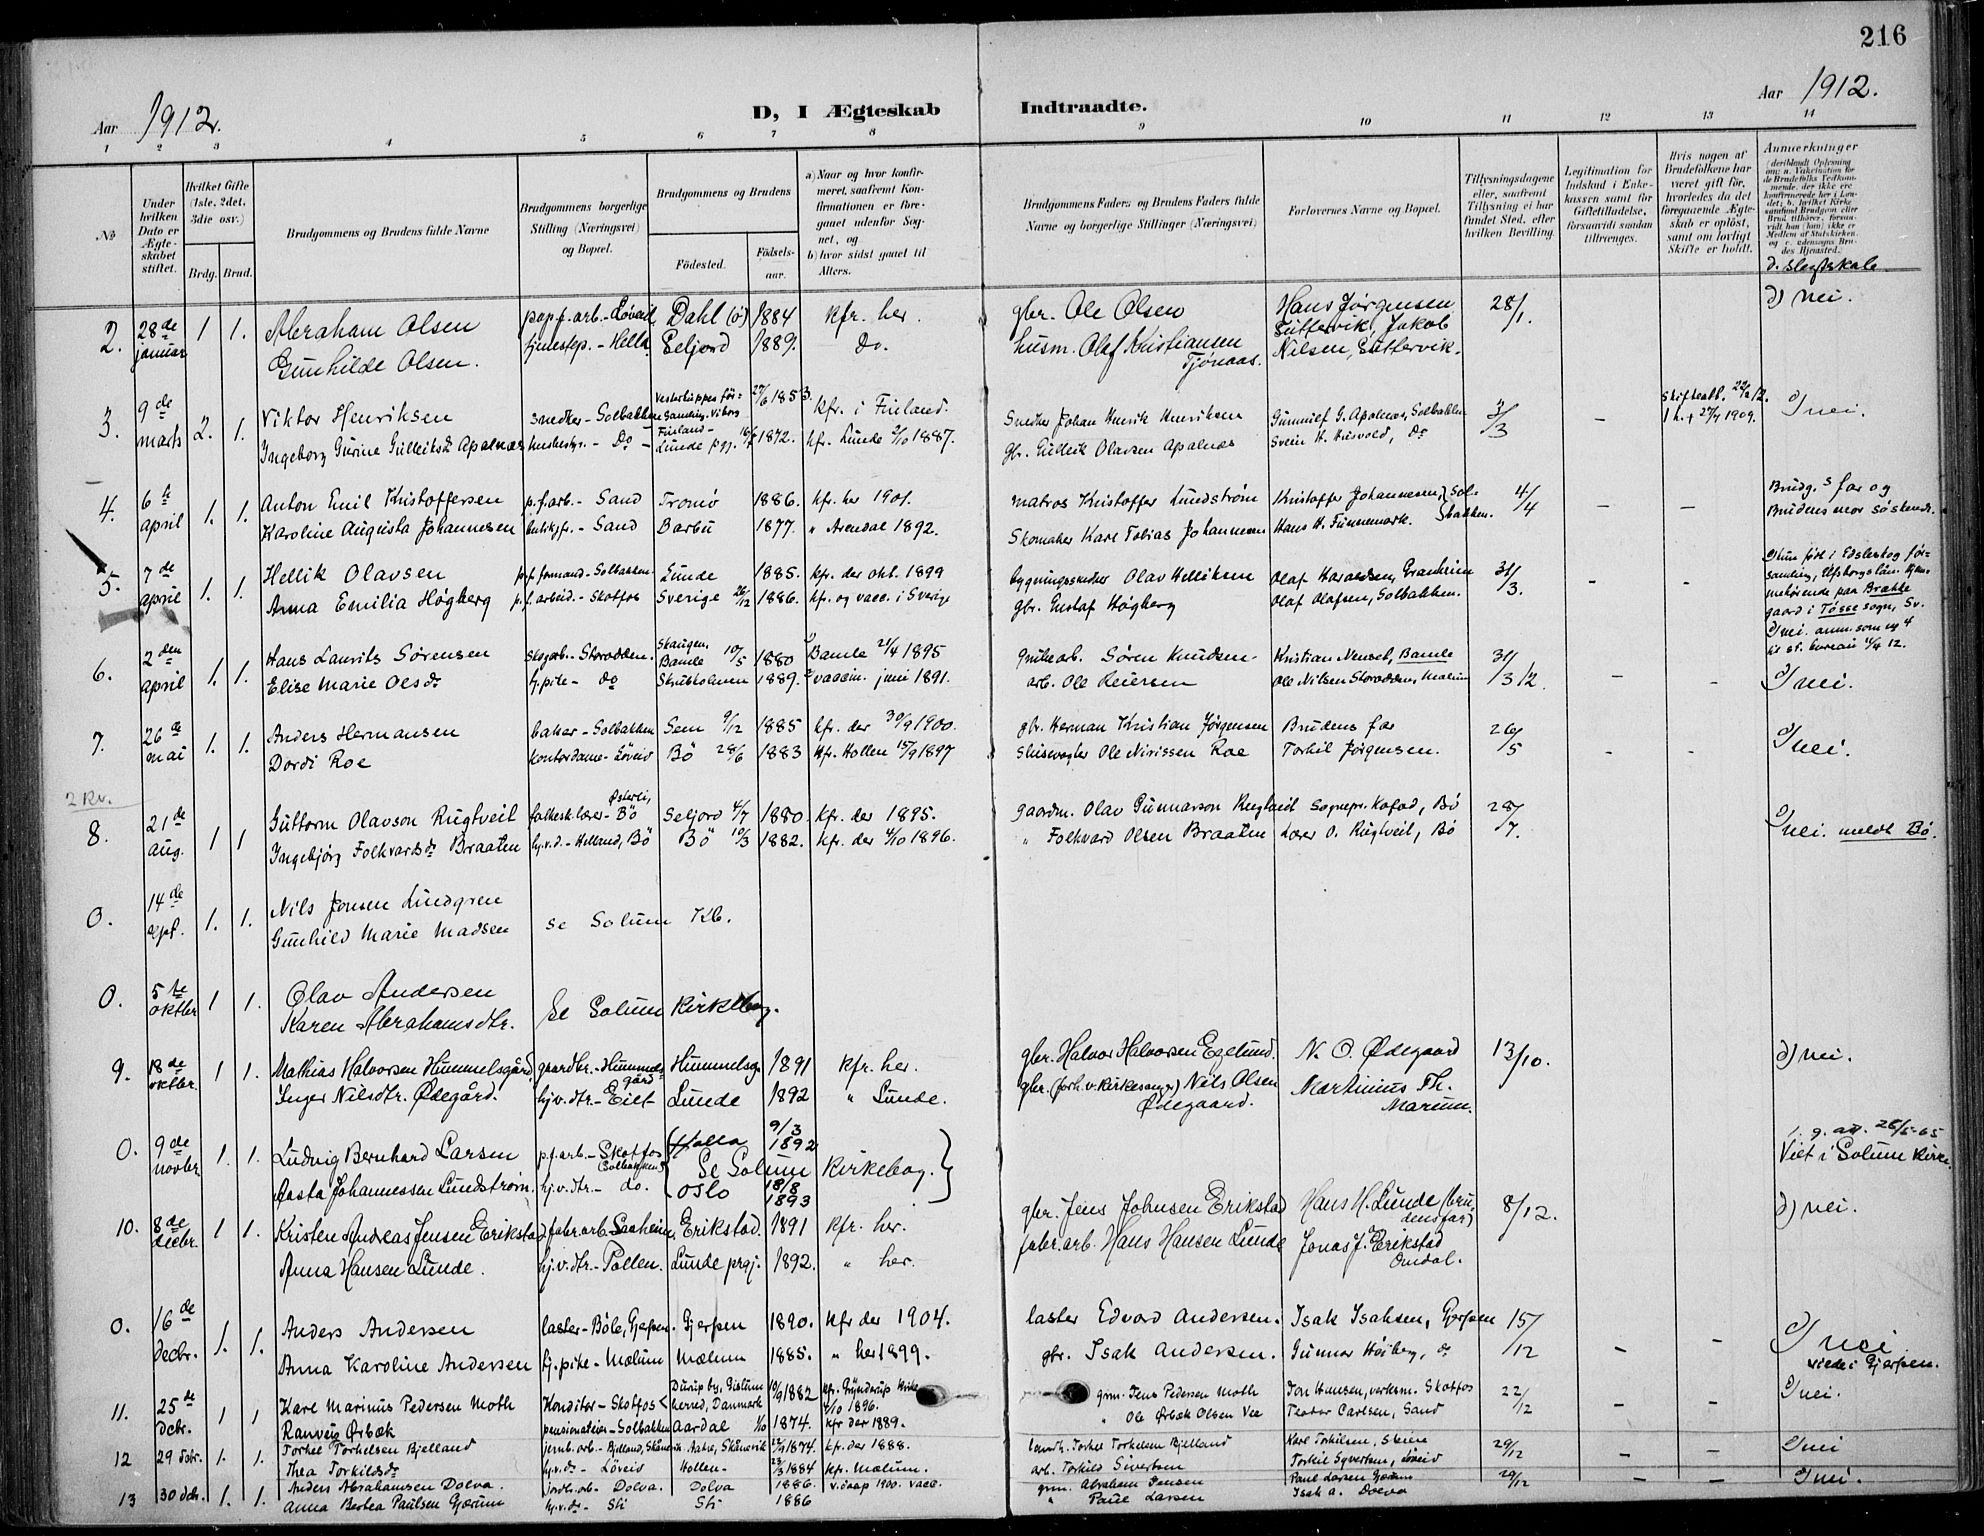 216
Aar 1912.
D, I Ægteskab Indtraadte.
Aar 1912.
1 2 3 4 5 6 7 8 9 10 11 12 13 14
№
Under hvilken Dato er Ægteskabet stiftet.
Hvilket Gifte (1ste, 2det, 3die osv.)
Brdg. Brud.
Brudgommens og Brudens fulde Navne
Brudgommens borgerlige Stilling (Næringsvei) og Bopæl.
Brudgommens og Brudens
Fødested. Fødselsaar.
a) Naar og hvor konfirmeret, saafremt Konfirmationen er foregaaet udenfor Sognet, og
b) hvor sidst gaaet til Alters.
Brudgommens Faders og Brudens Faders fulde Navne og borgerlige Stillinger (Næringsvei)
Forlovernes Navne og Bopæl.
Tillysningsdagene eller, saafremt Tillysning ei har fundet Sted, efter hvilken Bevilling.
Legitimation for Indskud i Enkekassen samt for Giftetilladelse, forsaavidt saadan tiltrænges.
Hvis nogen af Brudefolkene har været gift før, hvorledes da det foregaaende Ægteskab er opløst, samt om lovligt Skifte er holdt.
Anmerkninger
d. slegtskab
2. 28de januar 1 1. Abraham Olsen pap.f.arb. - Løveid Dahl (ø) 1884 kfr. her. gbr. Ole Olsen Hans Jørgensen 28/1. d) nei.
Gunhilde Olsen. tjenestep. - Hella. Seljord 1889. Do. husm. Olaf Kristiansen Tjønaas. Suttervik, Jakob Nilsen, Suttervik.
3. 9de marts 2. 1. Viktor Henriksen snedker - Solbakken 27/6 1853. kfr. i Finland. Snedker Johan Henrik Henriksen Gunnulf G. Apalnes, Solbakken 3/3 - d) nei.
Ingeborg Gurine Gulleiksd. Apalnæs - Do - Lunde prgj. 1872. kfr. Lunde 2/10 1887. gbr. Gulleik Olavsen Apalnæs Svein H. Husvold, Do
4. 6te april 1. 1. Anton Emil Kristoffersen p.f.arb. - Sand Tromø 1886. kfr. her 1901. matros Kristoffer Lundstrøm Kristoffer Johannesen, Solbakken. 4/4 - - Brudg.s far og Brudens mor søskende.
Karoline Augusta Johannesen butikjfr. - Sand Barbu 1877. " Arendal 1892. Skomaker Karl Tobias Johannesen Hans H. Funnemark.
5. 7de april 1. 1. Hellik Olavsen p.f. formand - Solbakken Lunde 1885. kfr. der okt. 1899 bygningssnedker Olav Helliksen Olaf Haraldsen, Granheim 31/3. - -
Anna Emilia Högberg p.f. arbeid. - Skotfos Sverige 26/12 1886. kfr. og vacc. i Sverige gbr. Gustaf Högberg Olaf Olafsen, Solbakken.
6. 2den april 1. 1. Hans Laurits Sørensen skogarb. - Storodden. Skaugen, Bamle 10/5 1880 Bamle 21/4 1895 grubearb. Søren Knudsen Kristian Neuset, Bamle 31/3 12. - - d) nei.
Elise Marie Olsdr. hj.pike - do Skrubholmen 1889. vaccin. juni 1891. arb. Ole Reiersen Ole Nilsen Storodden, Mælum
7. 26de mai 1. 1. Anders Hermansen baker - Solbakken Sem 9/12 1885 kfr. der 30/9 1900. gbr. Herman Kristian Jørgensen Brudens far 26/5 - - d) nei.
Dordi Roe kontordame - Løveid Bö 28/6 1883 kfr. Hollen 15/9 1897 slusevogter Ole Nirissen Roe Torkil Jørgensen.
2 Kv.
8. 21de aug. 1 1 Guttorm Olavson Rugtveit folkesk.lærer - Østerli, Bö Seljord 4/7 1880. kfr. der 1895. gaardm. Olav Gunnarson Rugtveit Sognepr. Kofod, Bö 28/7. d) nei. meldt Bö.
Ingebjørg Folkvardsdr. Braaten hj.v.d. - Helland, Bö Bö 10/3 1882. kfr. der 4/10 1896. " Folkvard Olsen Braaten Lærer O. Rugtveit, Bö
0. 14de sept. 1. 1. Nils Jonsen Lindgren
Gunhild Marie Madsen se Solum Kb.
0. 5te oktbr 1 1. Olav Andersen
Karen Abrahamsdtr. Se Solum Kirkebog.
9. 18de oktbr. 1 1. Mathias Halvorsen Hummelsgård, gaardbr. - Hummelsgård Hummelsg. 1891 kfr. her. gbr. Halvor Halvorsen Egelund. N. O. Ødegaard 13/10. d) nei.
Inger Nilsdtr. Ødegård. hj.v.dtr. - Eiet Lunde 1892 " Lunde. gbr. (forh.v. kirkesanger) Nils Olsen Ødegaard. Martinius Th. Marum.
0. 9de novbr 1. 1. Ludvig Bernhard Larsen p.f.arb. - Skotfos (Solbakken) Holla 9/3 1892 Se Solum Kirkebog. 28/5-65 Viet i Solum Kirke.
Aasta Johannessen Lundstrøm. hj.v.dtr. - do. Oslo 18/8 1893
10. 8de decbr. 1 1. Kristen Andreas Jensen Erikstad fabr.arb. - Saaheim, Erikstad. 1891 kfr. her. gbr. Jens Johnsen Erikstad Hans H. Lunde (brudens far) 8/12. d) nei.
Anna Hansen Lunde. hj.v.dtr. - Pollen. Lunde prgj. 1892. " her. fabr.arb. Hans Hansen Lunde Jonas J. Erikstad Omdal.
0. 16de decbr. 1. 1. Anders Andersen laster - Böle, Gjerpen. Gjerpen 1890. kfr der 1904. laster Edvard Andersen. Isak Isaksen, Gjerpen 15/12 - - d) nei
Anna Karoline Andersen hj.pike - Mælum Mælum 1885. " her 1899. gbr. Isak Andersen. Gunnar Høiberg, do viede i Gjerpen.
11. 25de decbr. 1 1 Karl Marinus Pedersen Moth Konditor - Skotfos Durup by, Gislum herred, Danmark 10/9 1882 kfr. Grynderup kirke 4/10 1896. grm. Jens Pedersen Moth Jon Hansen, verksm. Skotfos 22/12 - - d) nei.
Ranveig Ørbæk pensionateier - Solbakken Aardal 1/10 1874. kfr der 1889. " Ole Ørbæk Olsen Vee Teodor Carlsen, Sand
12 29 decbr. 1. 1. Torkel Torkelsen Bjelland jernb.arb. - Bjelland, Skånevik 1874. kfr. der 1888. Torkel Torkelsen Bjelland Karl Torkilsen, Skien 29/12 - - d) nei
Thea Torkildsdr. hj.v.dr - Løveid Hollen - 23/3 1884 kfr. Mælum. arb. Torkild Sivertsen Torkil Syvertsen, Løveid
13 30 dcbr. 1. 1. Anders Abrahamsen Dolva. jordbr.arb. - Dolva. Dolva 1886. v. daap 1900. vacc. grm. Abraham Jensen Paul Larsen Gjærum 29/12 - - d) nei.
Anna Bertea Paulsen Gjærum hj.v.dr - Sti Sti 1886 " Paul Larsen Isak A. Dolva